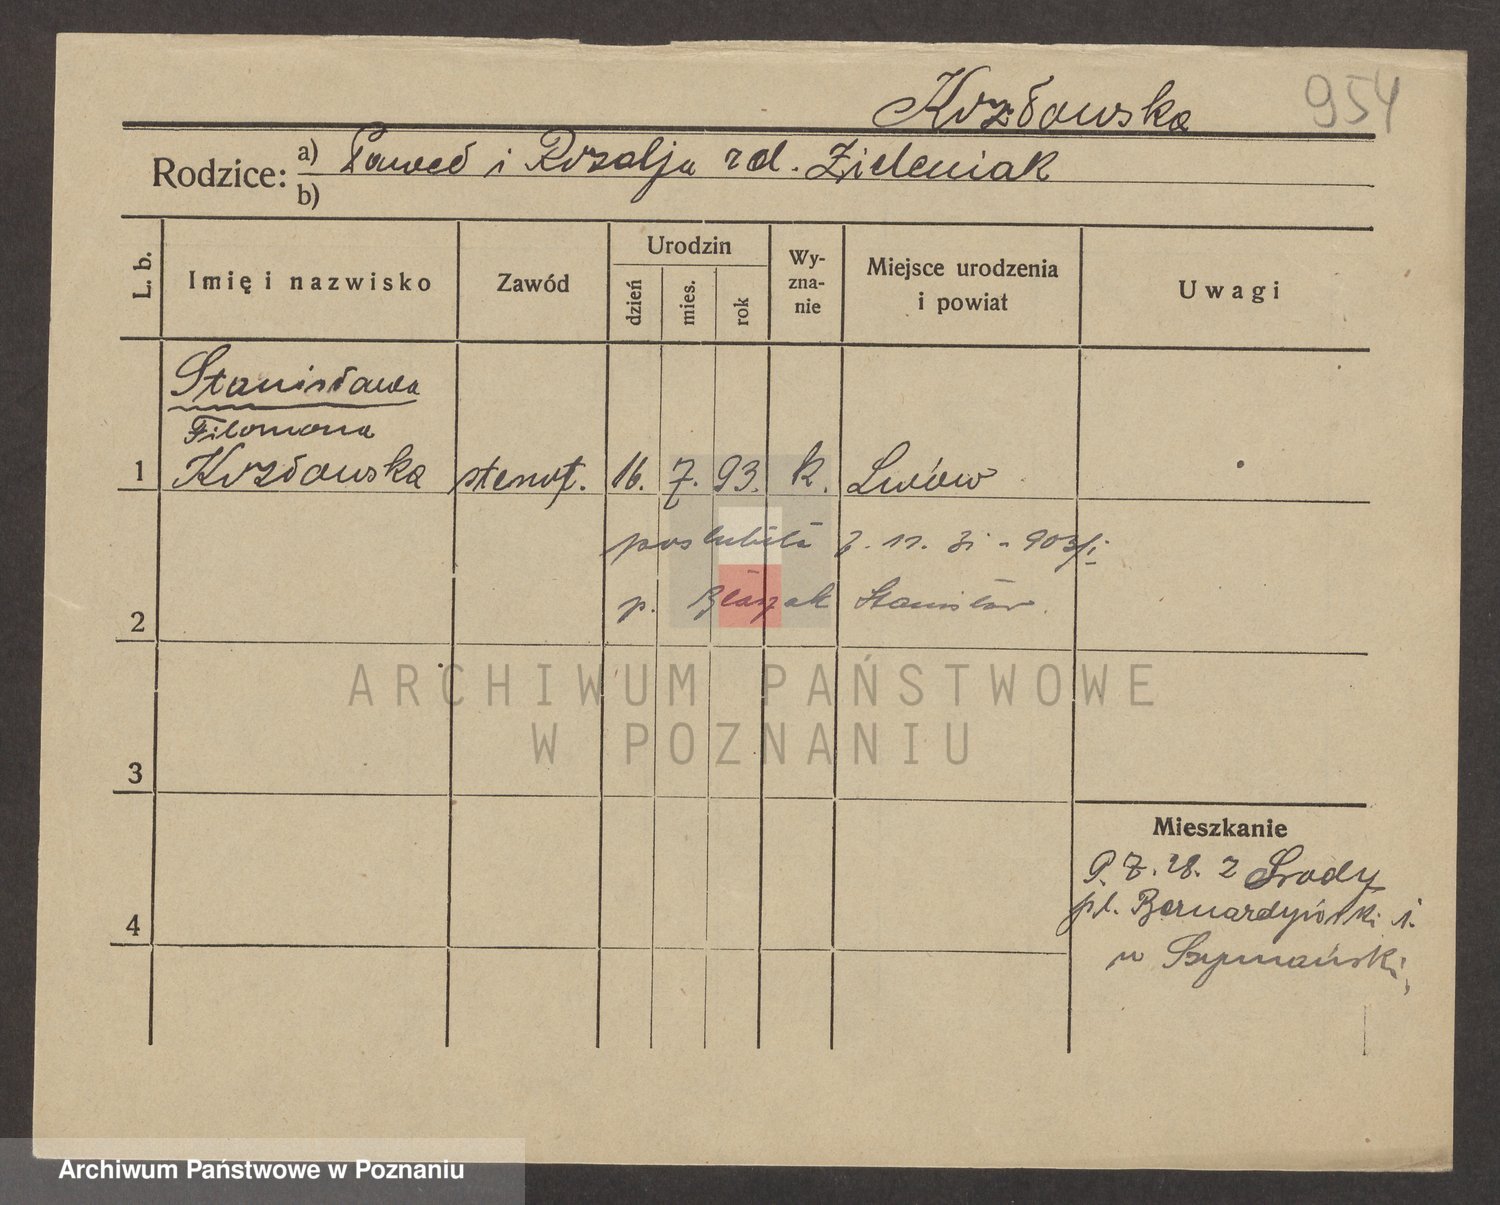 Kozłowska 954
Rodzice: a) Paweł i Rozalja zd. Zieleniak
b)
L. b.
Imię i nazwisko
Zawód
Urodzin
dzień
mies.
rok
Wy-
zna-
nie
Miejsce urodzenia
i powiat
Uwagi
Stanisława
Filomena
1 Kozłowska stenot. 16. 7. 93. k. Lwów
poślubiła 7. 11. 31 - 903/I
2 p. Błaszak Stanisław
3
Mieszkanie
9. 7. 28. z Środy
pl. Bernardyński 1.
4
u Szymański,
ARCHIWUM PAŃSTWOWE
W POZNANIU
Archiwum Państwowe w Poznaniu